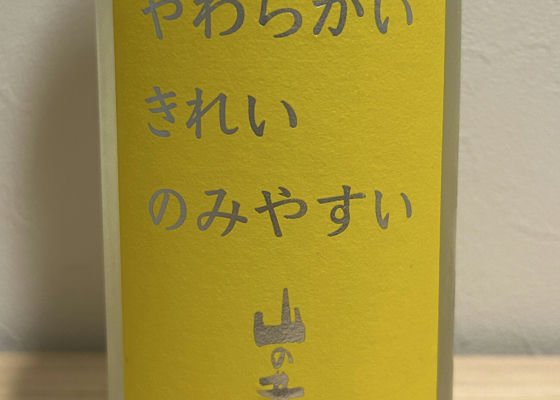 やわらかい
きれい
のみやすい
山の